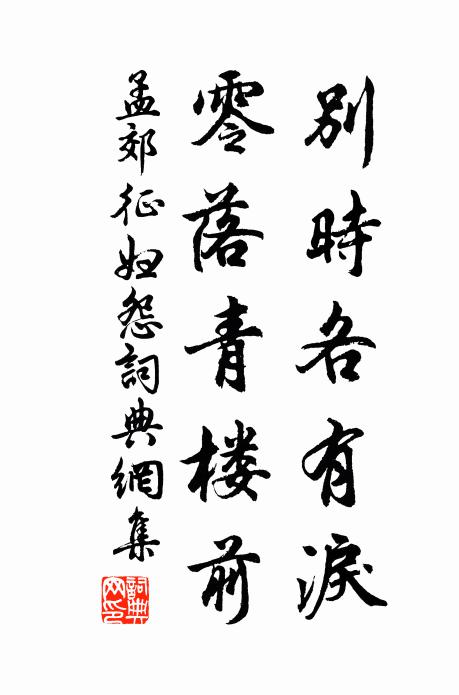 別時各有淚
零落青楼前
孟郊征婦怨詞典網集
詞典网印